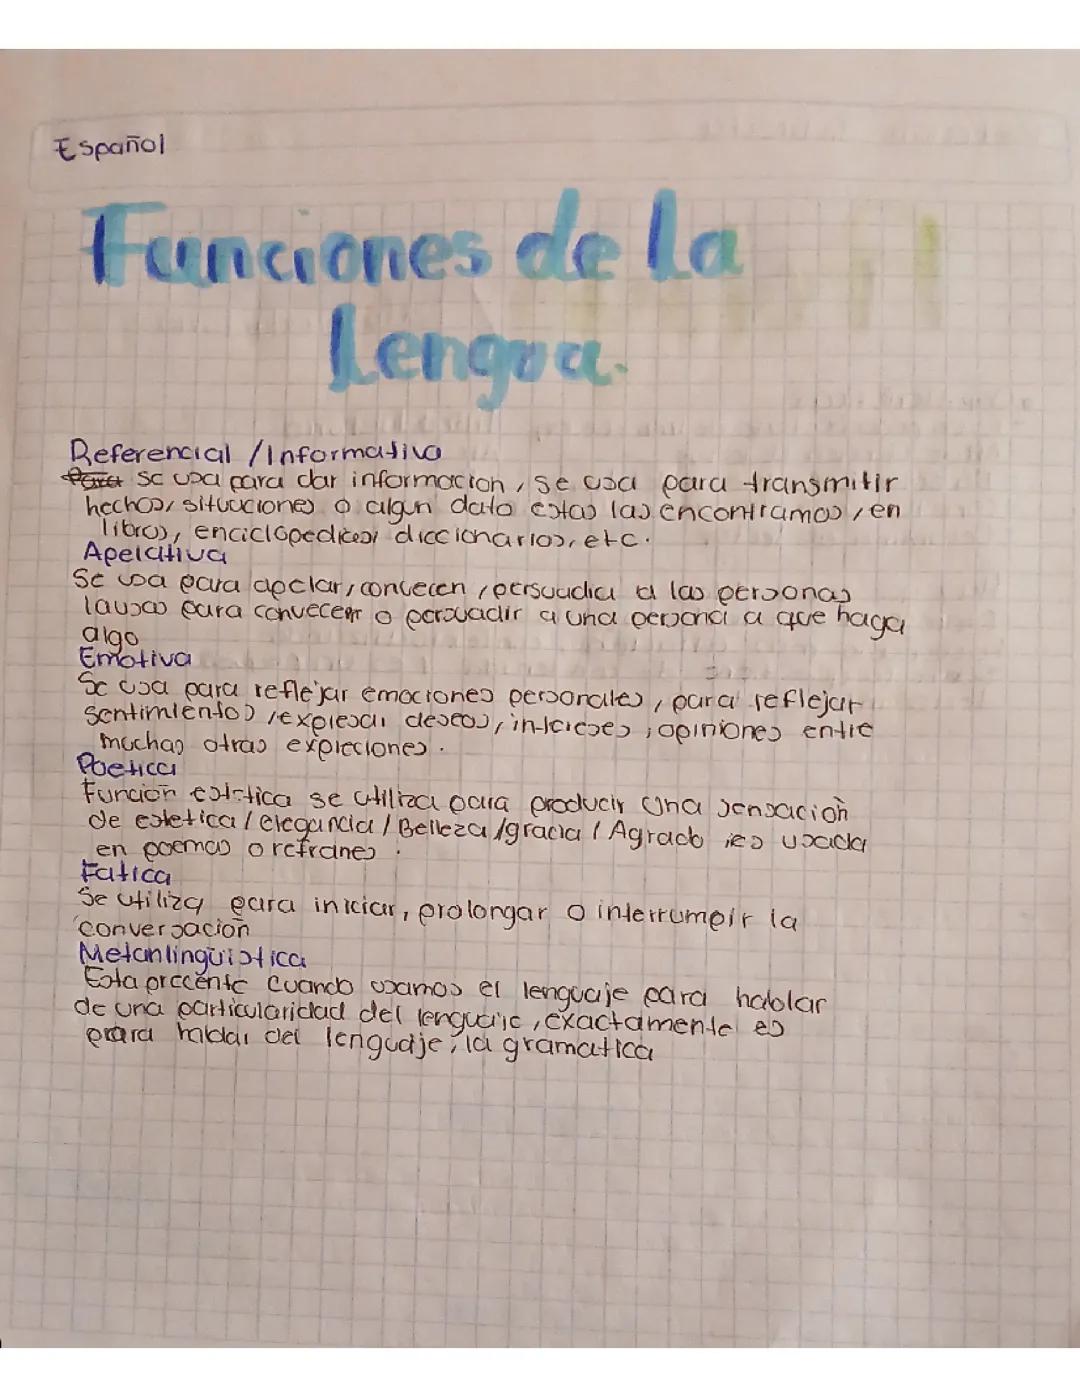 Español
Funciones de la
Lengua.
Referencial / Informativa
Para se usa para dar informacion, se usa para transmitir
hechos, situaciones o algun dato estas las encontramos, en
libros, enciclopedicas, diccionarios, etc.
Apelativa
Se usa para apelar, convecen, persuadia a las personas
la usas para convecer o persuadir a una persona a que haga
algo
Emotiva
Se usa para reflejar emociones personales, para reflejar
sentimientos, expresar deseos, intereses, opiniones entre
muchas otras expreciones.
Poetica
Función estetica se utiliza para producir una sensación
de estetica / elegancia / Belleza / gracia / Agrado, es usada
en poemas o refranes.
Fatica
Se utiliza para iniciar, prolongar o interrumpir la
conversación
Metanlingüistica
Esta precente cuando usamos el lenguaje para hablar
de una particularidad del lenguaje, exactamente es
para hablar del lenguaje, la gramatica